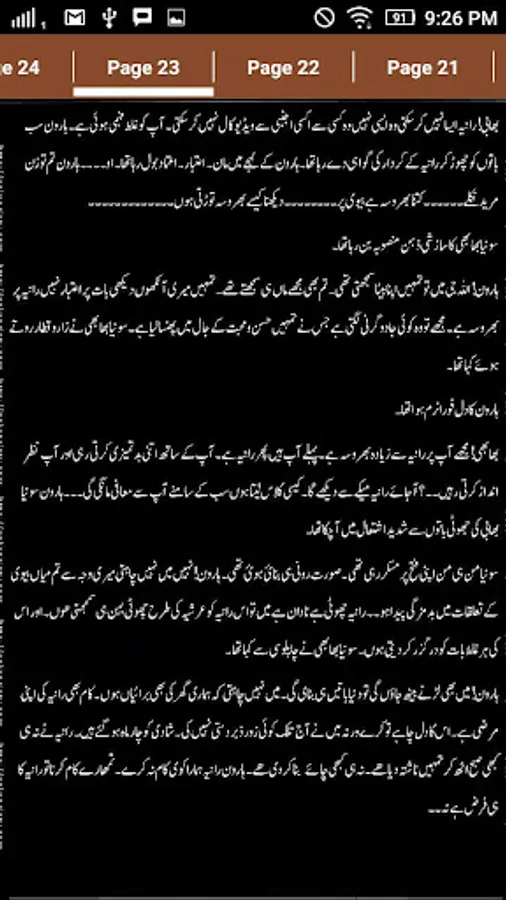 1
91
9:26 PM
e 24
Page 23
Page 22
Page 21
بھابی! رانیہ ایسا نہیں کر سکتی وہ ایسی نہیں وہ کسی سے اُسی اجنبی سے ویڈیو کال نہیں کر سکتی۔ آپ کو غلط فہمی ہوئی ہے۔ ہارون سب
باتوں کو چھوڑ کر رانیہ کے کردار کی گواہی دے رہا تھا۔ ہارون کے لہجے میں مان۔ اعتبار۔ اعتماد بول رہا تھا۔ او۔۔۔۔ ہارون تم تو زن
مرید نکلے۔۔۔۔۔۔ کتنا بھروسہ ہے بیوی پر۔۔۔۔۔۔۔۔ دیکھنا کیسے بھروسہ توڑتی ہوں۔۔۔۔۔۔۔۔۔۔۔۔۔
سونیا بھابھی کا سازشی ذہن منصوبہ بن رہا تھا۔
ہارون! اللہ جی میں تو تمہیں اپنا بیٹا سمجھتی تھی۔ تم بھی مجھے ماں ہی سمجھتے تھے۔ تمہیں میری آنکھوں دیکھی بات پر اعتبار نہیں رانیہ پر
بھروسہ ہے۔ مجھے تو وہ کوئی جادو گرنی لگتی ہے جس نے تمہیں حسن و محبت کے جال میں پھنسا لیا ہے۔ سونیا بھابھی نے زار و قطار روتے
ہوئے کہا تھا۔
ہارون کا دل فورا نرم ہوا تھا۔
بھابھی! مجھے آپ پر رانیہ سے زیادہ بھروسہ ہے۔ پہلے آپ ہیں پھر رانیہ ہے۔ آپ کے ساتھ اتنی بدتمیزی کرتی رہی اور آپ نظر
انداز کرتی رہیں۔۔؟ آ جائے رانیہ میکے سے دیکھے گا۔ کیسی کلاس لیتا ہوں سب کے سامنے آپ سے معافی مانگی گی۔۔۔ ہارون سونیا
بھابی کی جھوٹی باتوں سے شدید اشتعال میں آ چکا تھا۔
سونیا من ہی من اپنی فتح پر مسکرا رہی تھی۔ صورت رونی ہی بنائی ہوئی تھی۔ ہارون! نہیں میں نہیں چاہتی میری وجہ سے تم میاں بیوی
کے تعلقات میں بدمزگی پیدا ہو۔۔ رانیہ چھوٹی ہے نادان ہے میں تو اس رانیہ کو عرشیہ کی طرح چھوٹی بہن ہی سمجھتی ھوں۔ اور اس
کی ہر غلط بات کو درگزر کر دیتی ہوں۔ سونیا بھابھی نے چاپلوسی سے کہا تھا۔
ہارون! میں بھی لڑنے بیٹھ جاؤں گی تو دنیا باتیں ہی بنائی گی۔ میں نہیں چاہتی کہ ہماری گھر کی بھی برائیاں ہوں۔ کام بھی رانیہ کی اپنی
مرضی ہے۔ اس کا دل چاہے تو کرے ورنہ میں نے آج تلک کوئی زور زبردستی نہیں کی۔ شادی کو چار ماہ ہو گئے ہیں۔ رانیہ نے نہ ہی
کبھی صبح اٹھ کر تمہیں ناشتہ دیا ھے۔ نہ ہی کبھی چائے بنا کر دی ھے۔ ہارون رانیہ ہمارا کوی کام نہ کرے۔ تمھارے کام کرنا تو رانیہ کا
ہی فرض ہے نہ۔۔۔